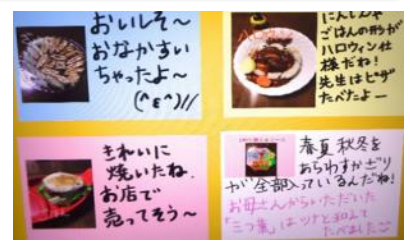 おいしそ〜
おなかすい
ちゃったよ〜
(^ε^)//
にんじんや
ごはんの形が
ハロウィン仕
様だね!
先生はピザ
たべたよー
きれいに
焼いたね。
お店で
売ってそう〜
春夏秋冬を
あらわすかざり
が全部入っているんだね!
お母さんからいただいた
「三つ葉」はツナと和えて
たべました